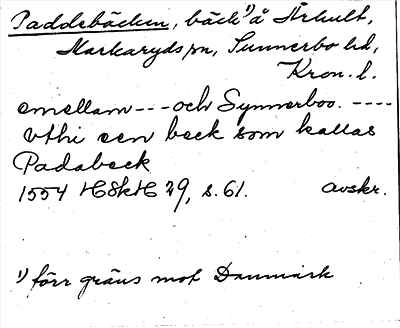 Paddebäcken, bäck¹⁾ å Århult,
Markaryds sn, Sunnerbo hd,
Kron. l.
emellam --- och Synnerboo. ----
vthi een beck som kallas
Padabeck
1554 HSkH 29, s. 61. avskr.
¹⁾ förr gräns mot Danmark